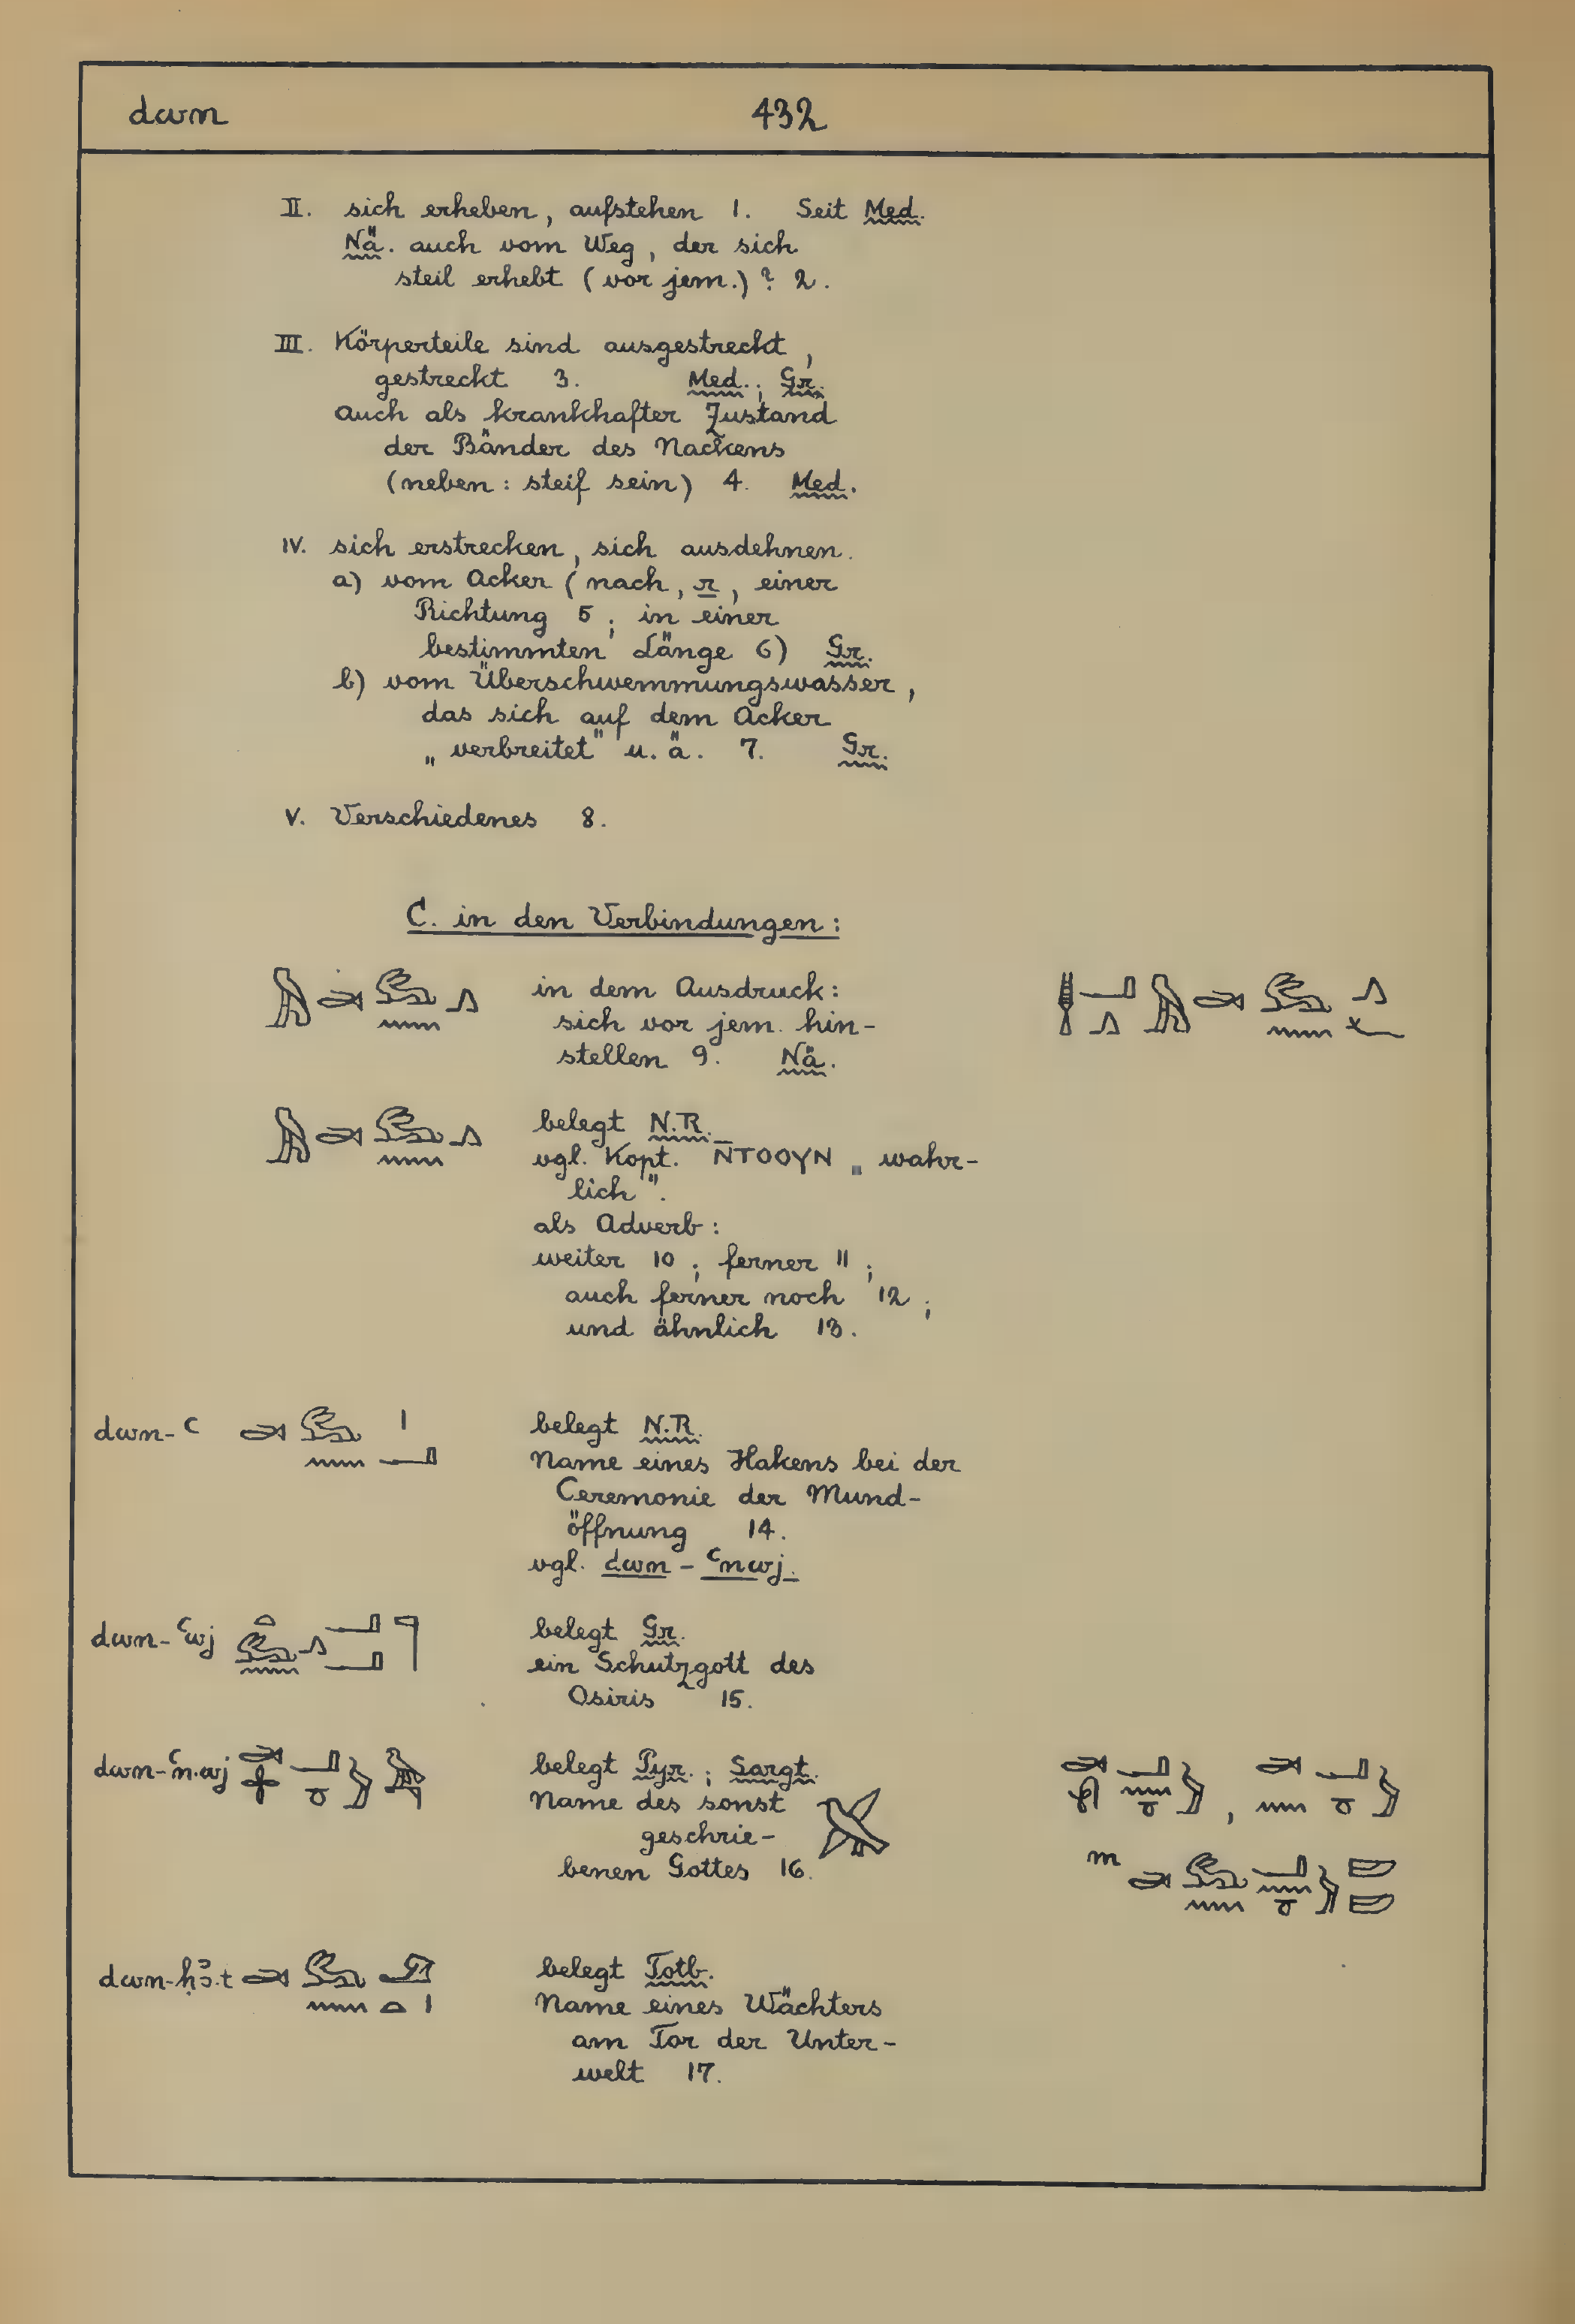 dwn 432
II. sich erheben, aufstehen 1. Seit Med.
Nä. auch vom Weg, der sich
steil erhebt (vor jem.)? 2.
III. Körperteile sind ausgestreckt,
gestreckt 3. Med.; Gr.
auch als krankhafter Zustand
der Bänder des Nackens
(neben: steif sein) 4. Med.
IV. sich erstrecken, sich ausdehnen.
a) vom Acker (nach, r, einer
Richtung 5; in einer
bestimmten Länge 6) Gr.
b) vom Überschwemmungswasser,
das sich auf dem Acker
„verbreitet" u. ä. 7. Gr.
V. Verschiedenes 8.
C. in den Verbindungen:
in dem Ausdruck:
sich vor jem. hin-
stellen 9. Nä.
belegt N.R.
vgl. Kopt. N̄TOOYN „wahr-
lich".
als Adverb:
weiter 10; ferner 11;
auch ferner noch 12;
und ähnlich 13.
dwn-ꜥ belegt N.R.
Name eines Hakens bei der
Ceremonie der Mund-
öffnung 14.
vgl. dwn-ꜥnwj.
dwn-ꜥwj belegt Gr.
ein Schutzgott des
Osiris 15.
dwn-ꜥn.wj belegt Pyr.; Sargt.
Name des sonst
geschrie-
benen Gottes 16.
m
dwn-ḥꜣ.t belegt Totb.
Name eines Wächters
am Tor der Unter-
welt 17.